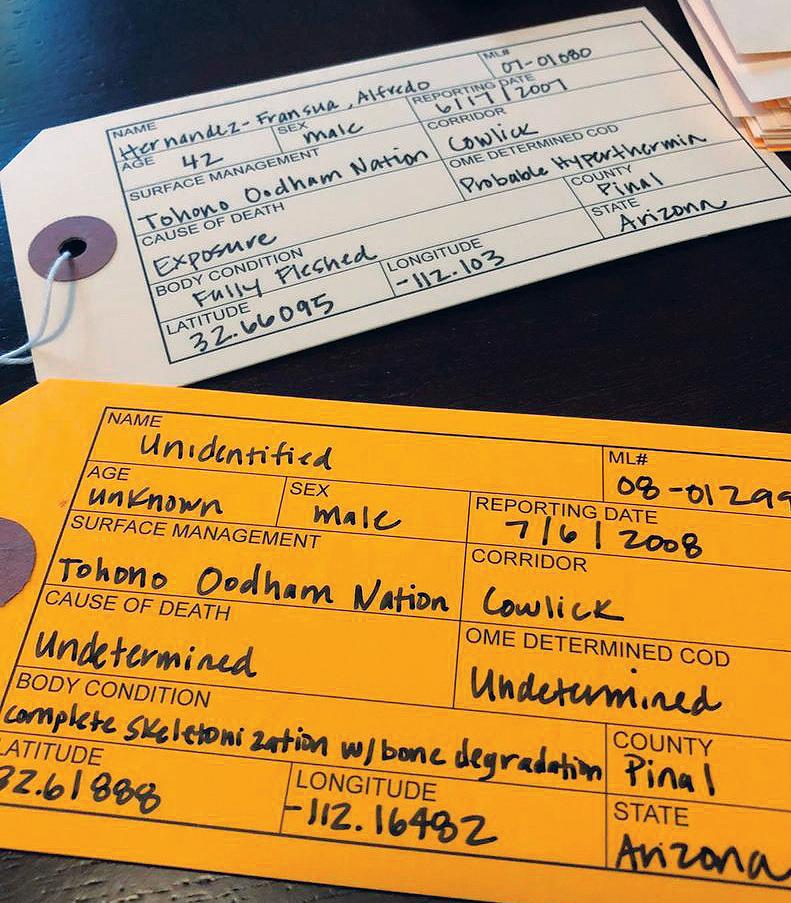 NAME
Hernandez-Fransua, Alfredo
ML#
07-01080
AGE
42
SEX
male
REPORTING DATE
6/17/2007
SURFACE MANAGEMENT
Tohono Oodham Nation
CORRIDOR
Cowlick
CAUSE OF DEATH
Exposure
OME DETERMINED COD
Probable Hyperthermin
BODY CONDITION
Fully Fleshed
COUNTY
Pinal
LATITUDE
32.66095
LONGITUDE
-112.103
STATE
Arizona
NAME
Unidentified
ML#
08-01299
AGE
unknown
SEX
male
REPORTING DATE
7/6/2008
SURFACE MANAGEMENT
Tohono Oodham Nation
CORRIDOR
Cowlick
CAUSE OF DEATH
Undetermined
OME DETERMINED COD
Undetermined
BODY CONDITION
complete skeletonization w/bone degradation
COUNTY
Pinal
LATITUDE
32.61888
LONGITUDE
-112.16482
STATE
Arizona